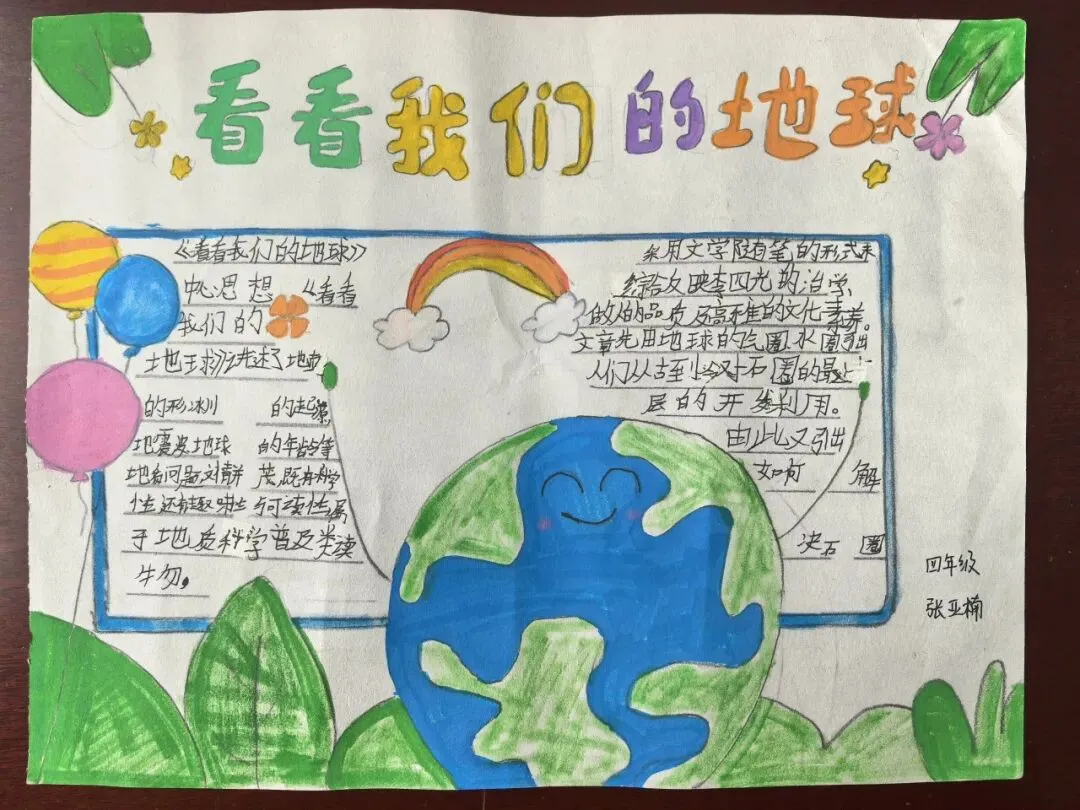 看看我们的地球
《看看我们的地球》
中心思想《看看
我们的
地球》讲述了地
的形冰川 的起源
地震及地球 的年龄等
地看问题 既有科学
性还有趣味性与可读性属
于地质科学普及类读
物。
采用文学随笔的形式来
综合反映李四光的治学
做人的品质及高雅的文化素养。
文章先由地球的气圈水圈引出
人们从古至少对石圈的最上
层的开线利用。
由此又引出
如何 解
决石 圈
四年级
张亚楠